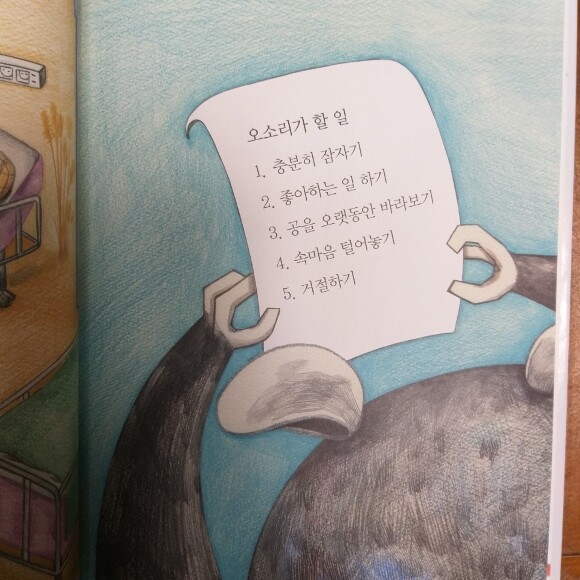 오소리가 할 일
1. 충분히 잠자기
2. 좋아하는 일 하기
3. 공을 오랫동안 바라보기
4. 속마음 털어놓기
5. 거절하기